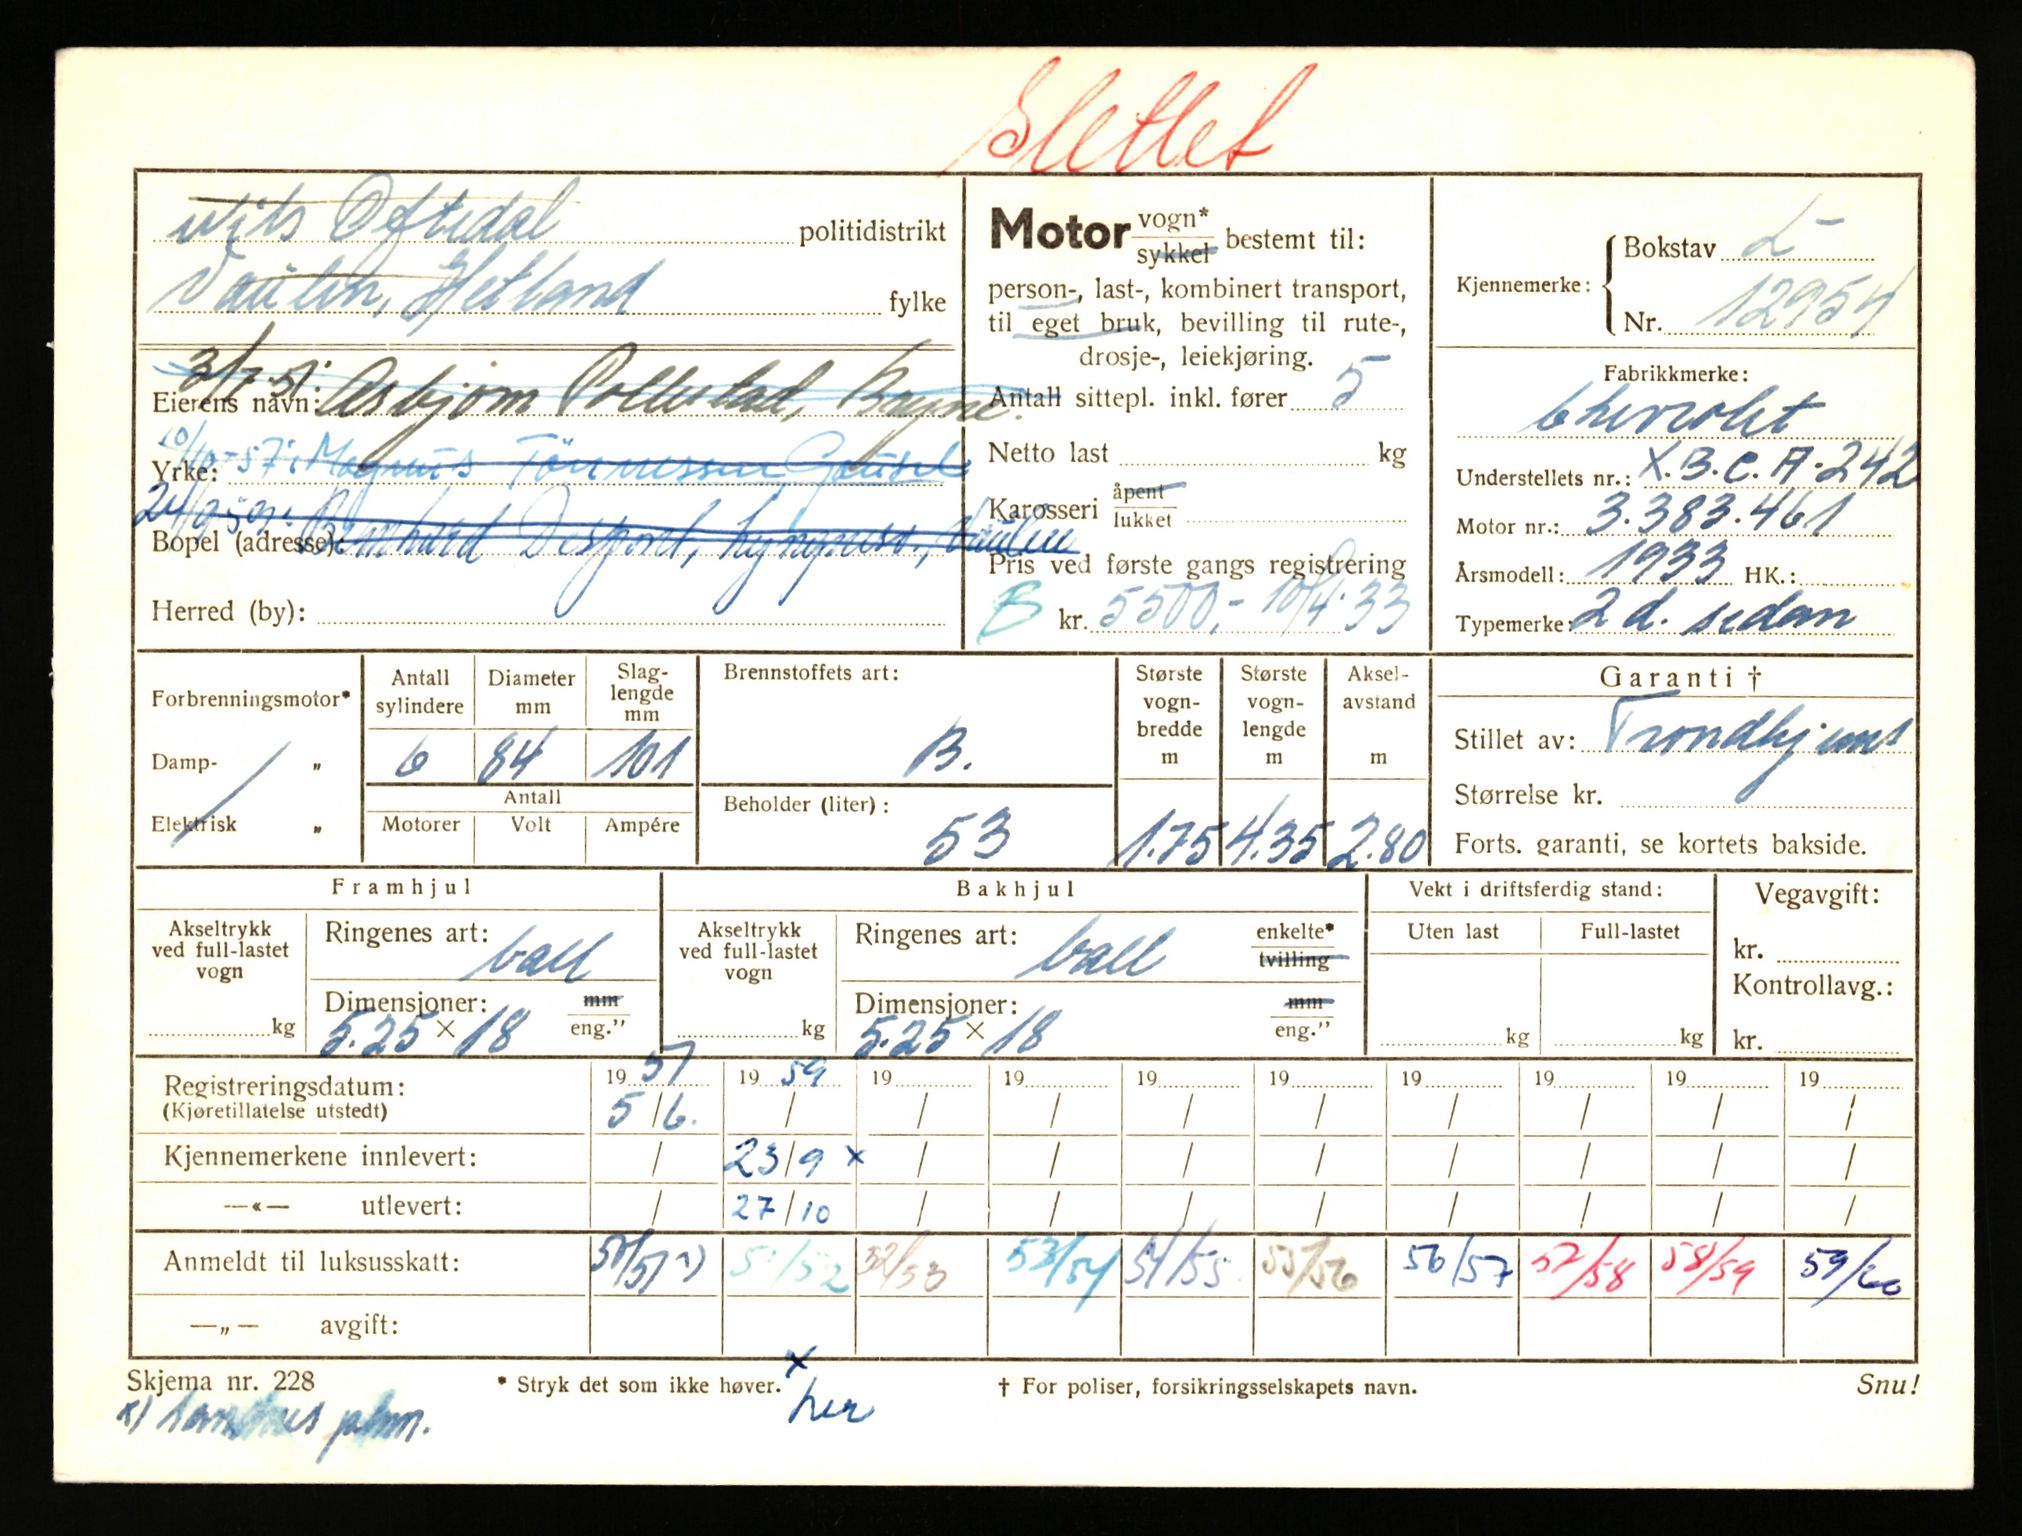 Slettet
Nils Oftedal politidistrikt
Vaulen, Hetland fylke
3/7.51: Asbjørn Pollestad, Bryne.
Eierens navn:
10/10-57: Magnus Tönnessen Gausel
Yrke:
24/9 59:
Bopel (adresse):
Herred (by):
Motor vogn* sykkel bestemt til:
person-, last-, kombinert transport,
til eget bruk, bevilling til rute-,
drosje-, leiekjøring.
Antall sittepl. inkl. fører 5
Netto last kg
Karosseri åpent lukket
Pris ved første gangs registrering
B kr. 5500,- 10/4.33
Kjennemerke: Bokstav L-
Nr. 12954
Fabrikkmerke:
Chevrolet
Understellets nr.: X.B.C.A-242
Motor nr.: 3.383.461
Årsmodell: 1933 HK.:
Typemerke: 2 d. sedan
Forbrenningsmotor*
Damp- „
Elektrisk „
Antall sylindere Diameter mm Slaglengde mm
6 84 101
Antall
Motorer Volt Ampére
Brennstoffets art:
B.
Beholder (liter):
53
Største vognbredde m Største vognlengde m Akselavstand m
1.75 4.35 2.80
Garanti †
Stillet av: Trondhjems
Størrelse kr.
Forts. garanti, se kortets bakside.
Framhjul
Akseltrykk ved full-lastet vogn kg
Ringenes art: ball
Dimensjoner: mm
5.25 × 18 eng."
Bakhjul
Akseltrykk ved full-lastet vogn kg
Ringenes art: ball enkelte* tvilling
Dimensjoner: mm
5.25 × 18 eng."
Vekt i driftsferdig stand:
Uten last Full-lastet
kg kg
Vegavgift:
kr.
Kontrollavg.:
kr.
Registreringsdatum: 19 51 19 59 19 19 19 19 19 19 19 19
(Kjøretillatelse utstedt) 5/6. / / / / / / / / /
Kjennemerkene innlevert: / 23/9 x / / / / / / / /
—«— utlevert: / 27/10 / / / / / / / /
Anmeldt til luksusskatt: 50/51 x) 51/52 52/53 53/54 54/55 55/56 56/57 57/58 58/59 59/60
—„— avgift:
Skjema nr. 228 * Stryk det som ikke høver. † For poliser, forsikringsselskapets navn. Snu!
x her
x)